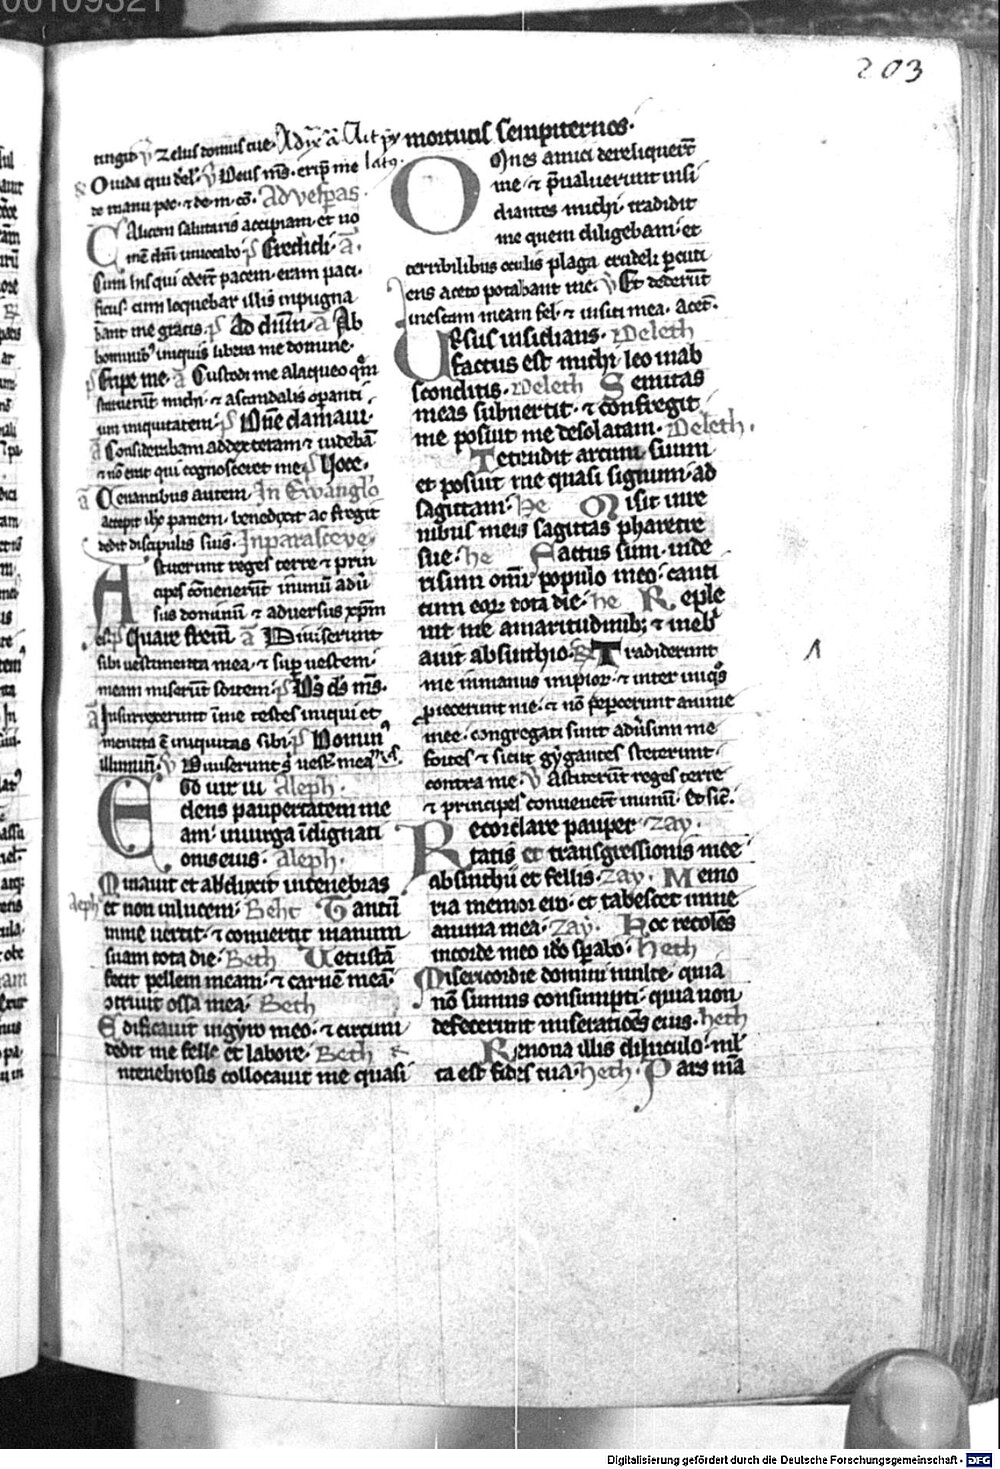 203
tingit. V Zelus domus tue. Ad xp̄ a Ait py latꝰ.
Ouida qui del. V Deus ms̄. erip̄ me
de manu pec. ⁊ de m. c̄o. Ad vesp̄as.
Calicem salutaris accipiam. et no
mē dn̄i inuocabo. p̄ Credidi. ā.
Cum his qui oder̄t pacem. eram paci
ficus. cum loquebar illis inpugna
bant me gratis. p̄ Ad dn̄m. ā Ab
hominibꝰ iniquis libera me domine.
p̄ Eripe me. ā Custodi me alaqueo qm̄
statuerūt michi. ⁊ ascandalis oꝑanti
um iniquitatem. p̄ Dn̄e clamaui.
ā Considerabam addexteram ⁊ uidebā
⁊ nō erat qui cognosceret me. p̄ Uoce.
ā Cenantibus autem. In Ewanglo
accepit ihc̄ panem. benedixit ac fregit
dedit discipulis suis. In parasceve.
Astiterunt reges terre ⁊ prin
cipes cōuenerūt inunū adū
sus dominū ⁊ aduersus xp̄m
eiꝰ. p̄ Quare frem̄. ā Diuiserunt
sibi uestimenta mea. ⁊ sup̄ uestem
meam miserūt sortem. p̄ Ds̄ ds̄ ms̄.
ā Insurrexerunt īme testes iniqui et
mentita ē iniquitas sibi. p̄ Dominꝰ
illumin̄. V Diuiserunt s̄ uest̄ mea
Ego uir ui Aleph.
dens paupertatem me
am. inuirga īdignati
onis eius. Aleph.
Minauit et abduxit intenebras
aleph et non inlucem. Beht Tantū
inme uertit. ⁊ conuertit manum
suam tota die. Beth Uetustā
fecit pellem meam. ⁊ carnē meā.
⁊triuit ossa mea. Beth
Edificauit ingyro meo. ⁊ circum
dedit me felle et labore. Beth
ntenebrosis collocauit me quasi
mortuus sempiternos.
Omnes amici dereliquer̄t
me. ⁊ p̄ualuerunt insi
diantes michi. tradidit
me quem diligebam. et
terribilibus oculis plaga crudeli ꝑcuti
ens aceto potabant me. V Et dederūt
inescam meam fel. ⁊ insiti mea. acet̄.
Ursus insidians. Deleth
factus est michi. leo inab
sconditis. Deleth Semitas
meas subuertit. ⁊ confregit
me posuit me desolatam. Deleth.
Tetendit arcum suum
et posuit me quasi signum. ad
sagittam. He Misit inre
nibus meis sagittas pharetre
sue. he Factus sum. inde
risum omī populo meo. canti
cum eoꝝ tota die. he Reple
uit me amaritudinibꝫ ⁊ inebꝰ
auit absinthio. R Tradiderunt
me inmanus impioꝝ. ⁊ inter iniqͦs
ꝓiecerunt me. ⁊ nō pepercerunt anime
mee. congregati sunt adūsum me
fortes ⁊ sicut gygantes steterunt
contra me. V Astiterūt reges terre
⁊ principes conuenerūt inunū. Et sic̄.
Recordare pauper Zay.
tatis et transgressionis mee
absinthii et fellis. Zay. Memo
ria memor ero. et tabescet inme
anima mea. Zay. Hoc recolēs
incorde meo ido sp̄abo. heth
Misericordie domini multe. quia
nō sumus consumpti. quia non
defecerunt miseratiōes eius. heth
R nona illis diluculo. ml̄
ta est fides tua. heth. Pars mā
1
Digitalisierung gefördert durch die Deutsche Forschungsgemeinschaft - DFG